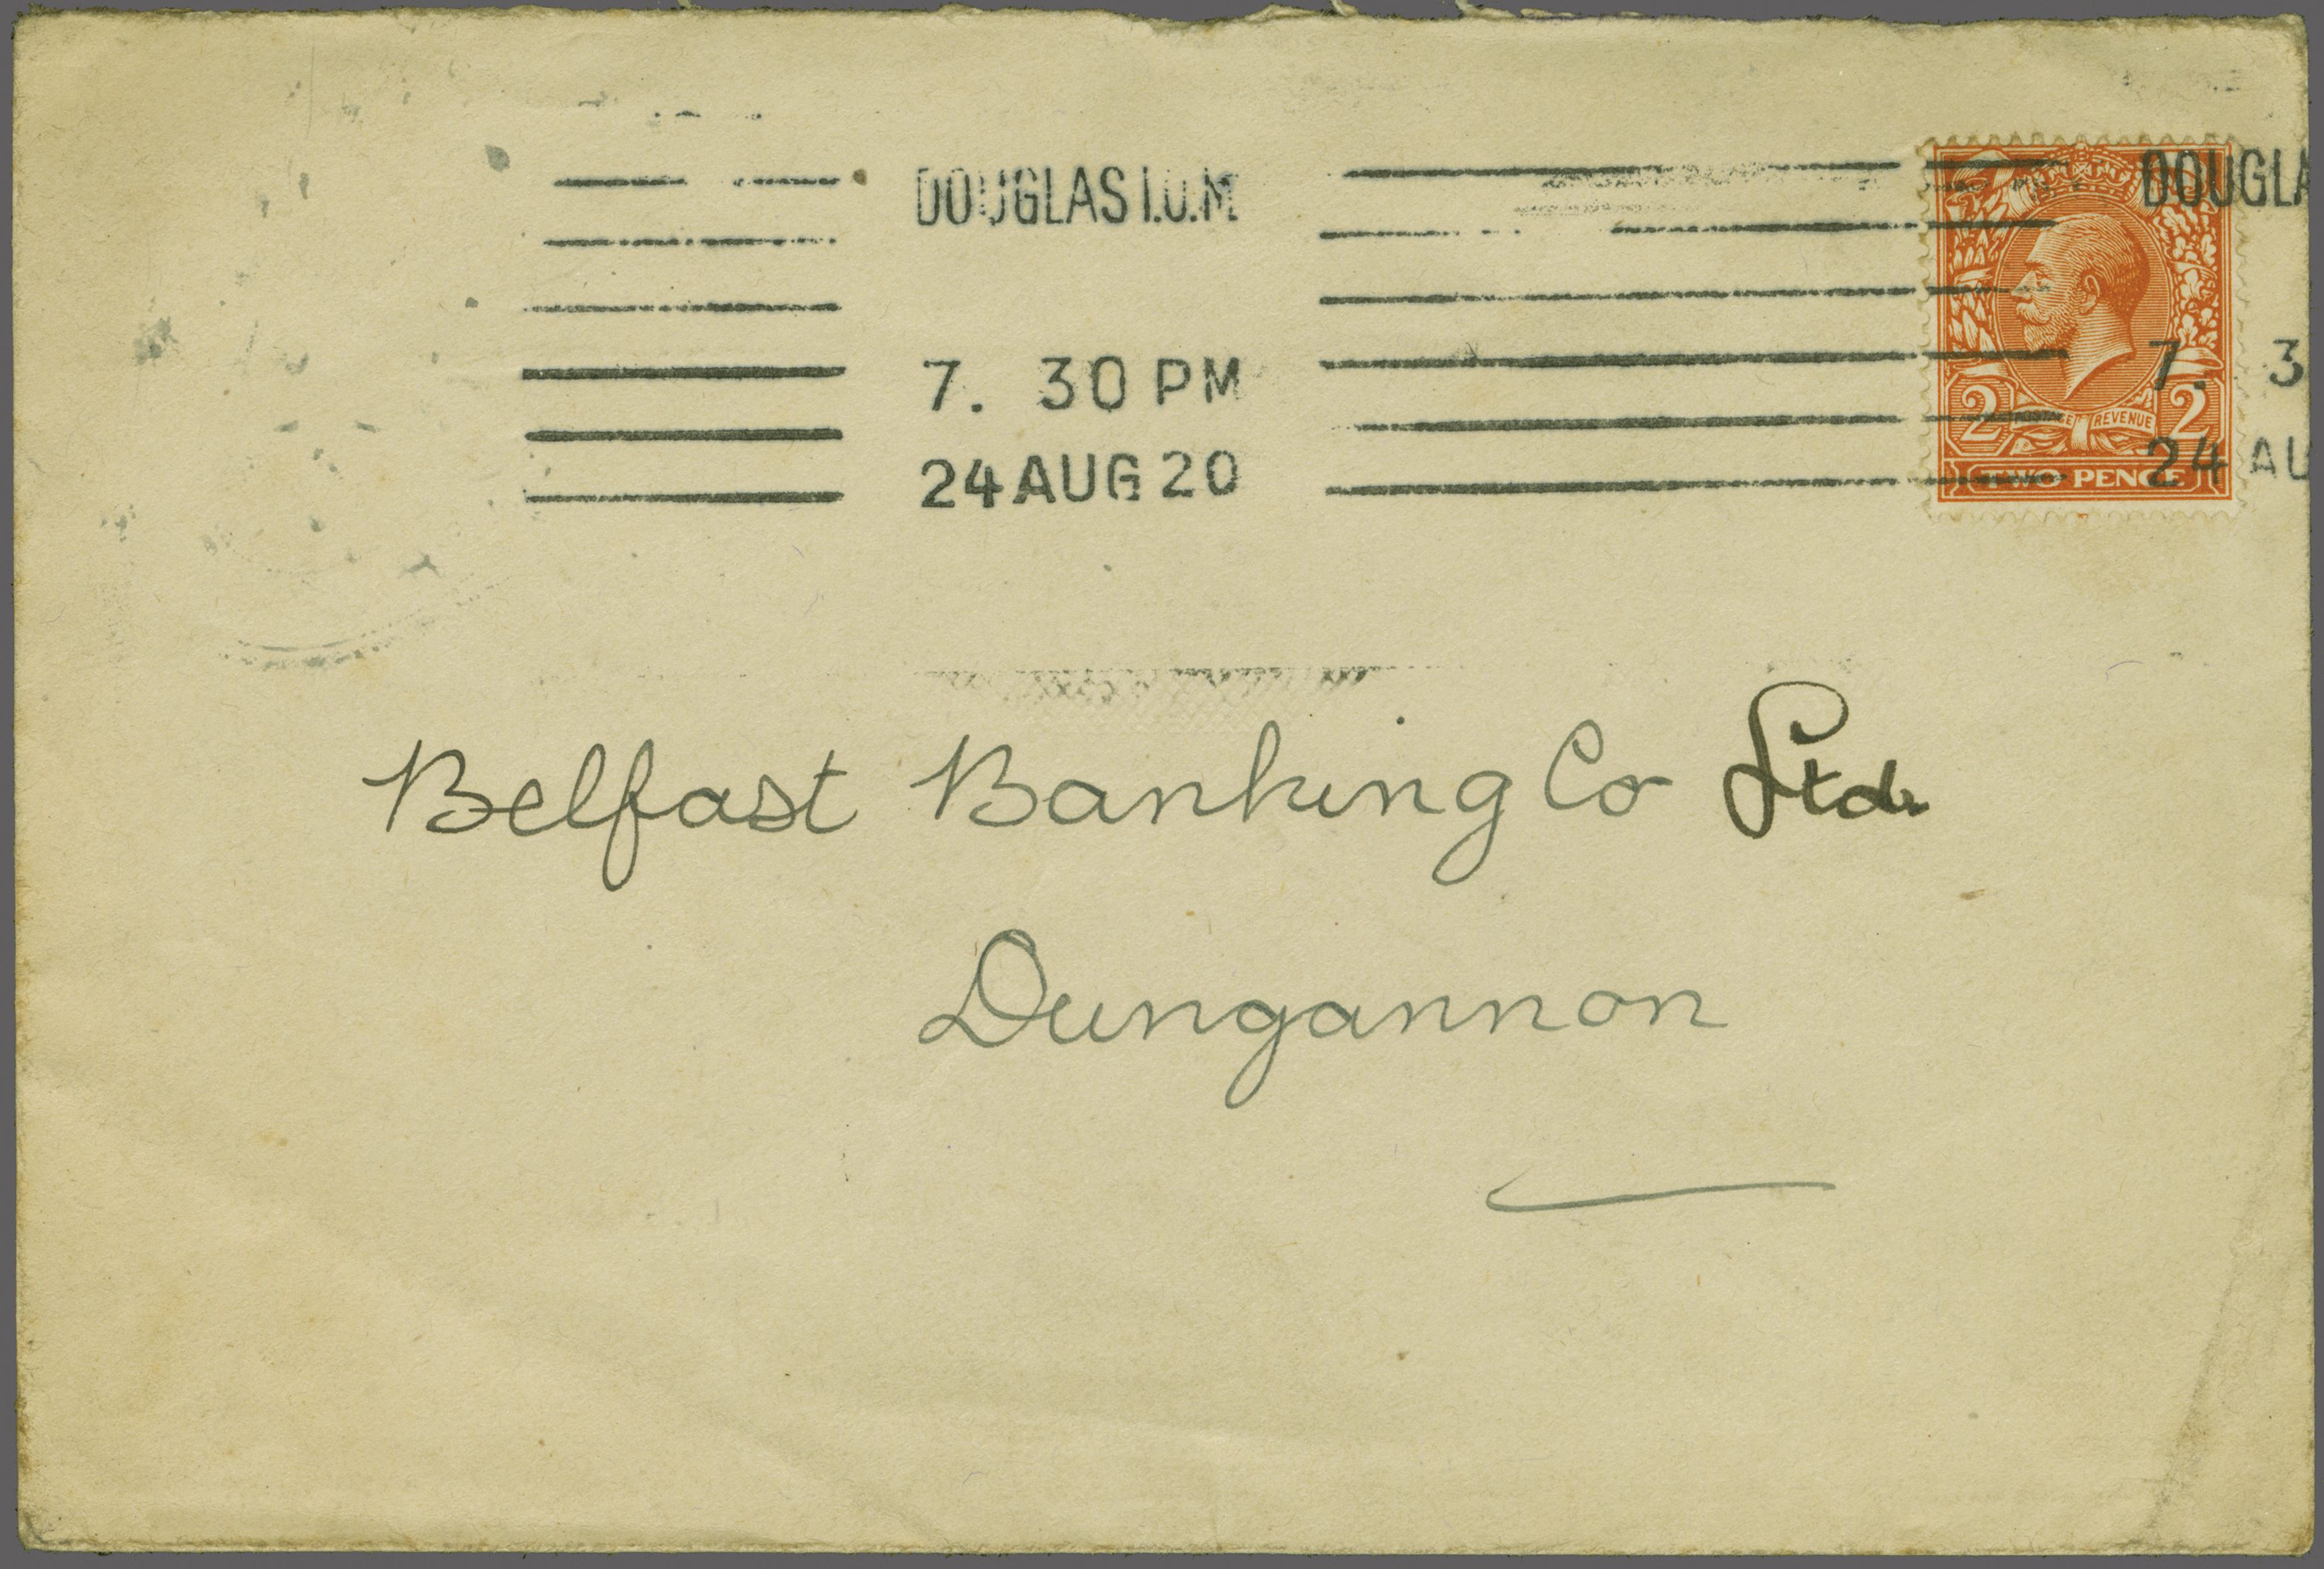 DOUGLAS I.O.M
7. 30 PM
24 AUG 20
DOUGLA
7. 3
24 AU
POSTAGE REVENUE
2 2
TWO PENCE
Belfast Banking Co Ltd.
Dungannon